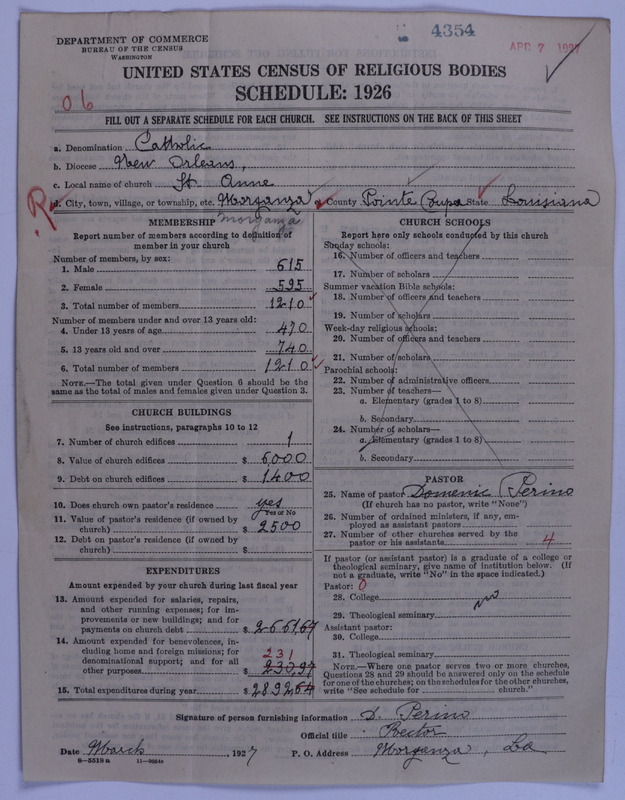 4354
APR 7 1927
DEPARTMENT OF COMMERCE
BUREAU OF THE CENSUS
WASHINGTON
UNITED STATES CENSUS OF RELIGIOUS BODIES
SCHEDULE: 1926
06
FILL OUT A SEPARATE SCHEDULE FOR EACH CHURCH. SEE INSTRUCTIONS ON THE BACK OF THIS SHEET
a. Denomination Catholic
b. Diocese New Orleans,
c. Local name of church St. Anne
d. City, town, village, or township, etc. Morganza County Pointe Coupa State Louisiana
Morganza
MEMBERSHIP
Report number of members according to definition of
member in your church
Number of members, by sex:
1. Male 615
2. Female 595
3. Total number of members 1210
Number of members under and over 13 years old:
4. Under 13 years of age 470
5. 13 years old and over 740
6. Total number of members 1210
NOTE.—The total given under Question 6 should be the
same as the total of males and females given under Question 3.
CHURCH BUILDINGS
See instructions, paragraphs 10 to 12
7. Number of church edifices 1
8. Value of church edifices $ 6,000
9. Debt on church edifices $ 1,400
10. Does church own pastor's residence yes
Yes or No
11. Value of pastor's residence (if owned by
church) $ 2500
12. Debt on pastor's residence (if owned by
church) $
EXPENDITURES
Amount expended by your church during last fiscal year
13. Amount expended for salaries, repairs,
and other running expenses; for im-
provements or new buildings; and for
payments on church debt $ 2661,67
14. Amount expended for benevolences, in-
cluding home and foreign missions; for
denominational support; and for all
231
other purposes $ 230,97
15. Total expenditures during year $ 2892 64
CHURCH SCHOOLS
Report here only schools conducted by this church
Sunday schools:
16. Number of officers and teachers
17. Number of scholars
Summer vacation Bible schools:
18. Number of officers and teachers
19. Number of scholars
Week-day religious schools:
20. Number of officers and teachers
21. Number of scholars
Parochial schools:
22. Number of administrative officers
23. Number of teachers—
a. Elementary (grades 1 to 8)
b. Secondary
24. Number of scholars—
a. Elementary (grades 1 to 8)
b. Secondary
PASTOR
25. Name of pastor Domenic Perino
(If church has no pastor, write "None")
26. Number of ordained ministers, if any, em-
ployed as assistant pastors
27. Number of other churches served by the
pastor or his assistants 4
If pastor (or assistant pastor) is a graduate of a college or
theological seminary, give name of institution below. (If
not a graduate, write "No" in the space indicated.)
Pastor: 0
28. College no
29. Theological seminary
Assistant pastor:
30. College
31. Theological seminary
NOTE.—Where one pastor serves two or more churches,
Questions 28 and 29 should be answered only on the schedule
for one of the churches; on the schedules for the other churches,
write "See schedule for church."
Signature of person furnishing information D. Perino
Official title Rector
Date March, 1927 P. O. Address Morganza, La
8—5518 a